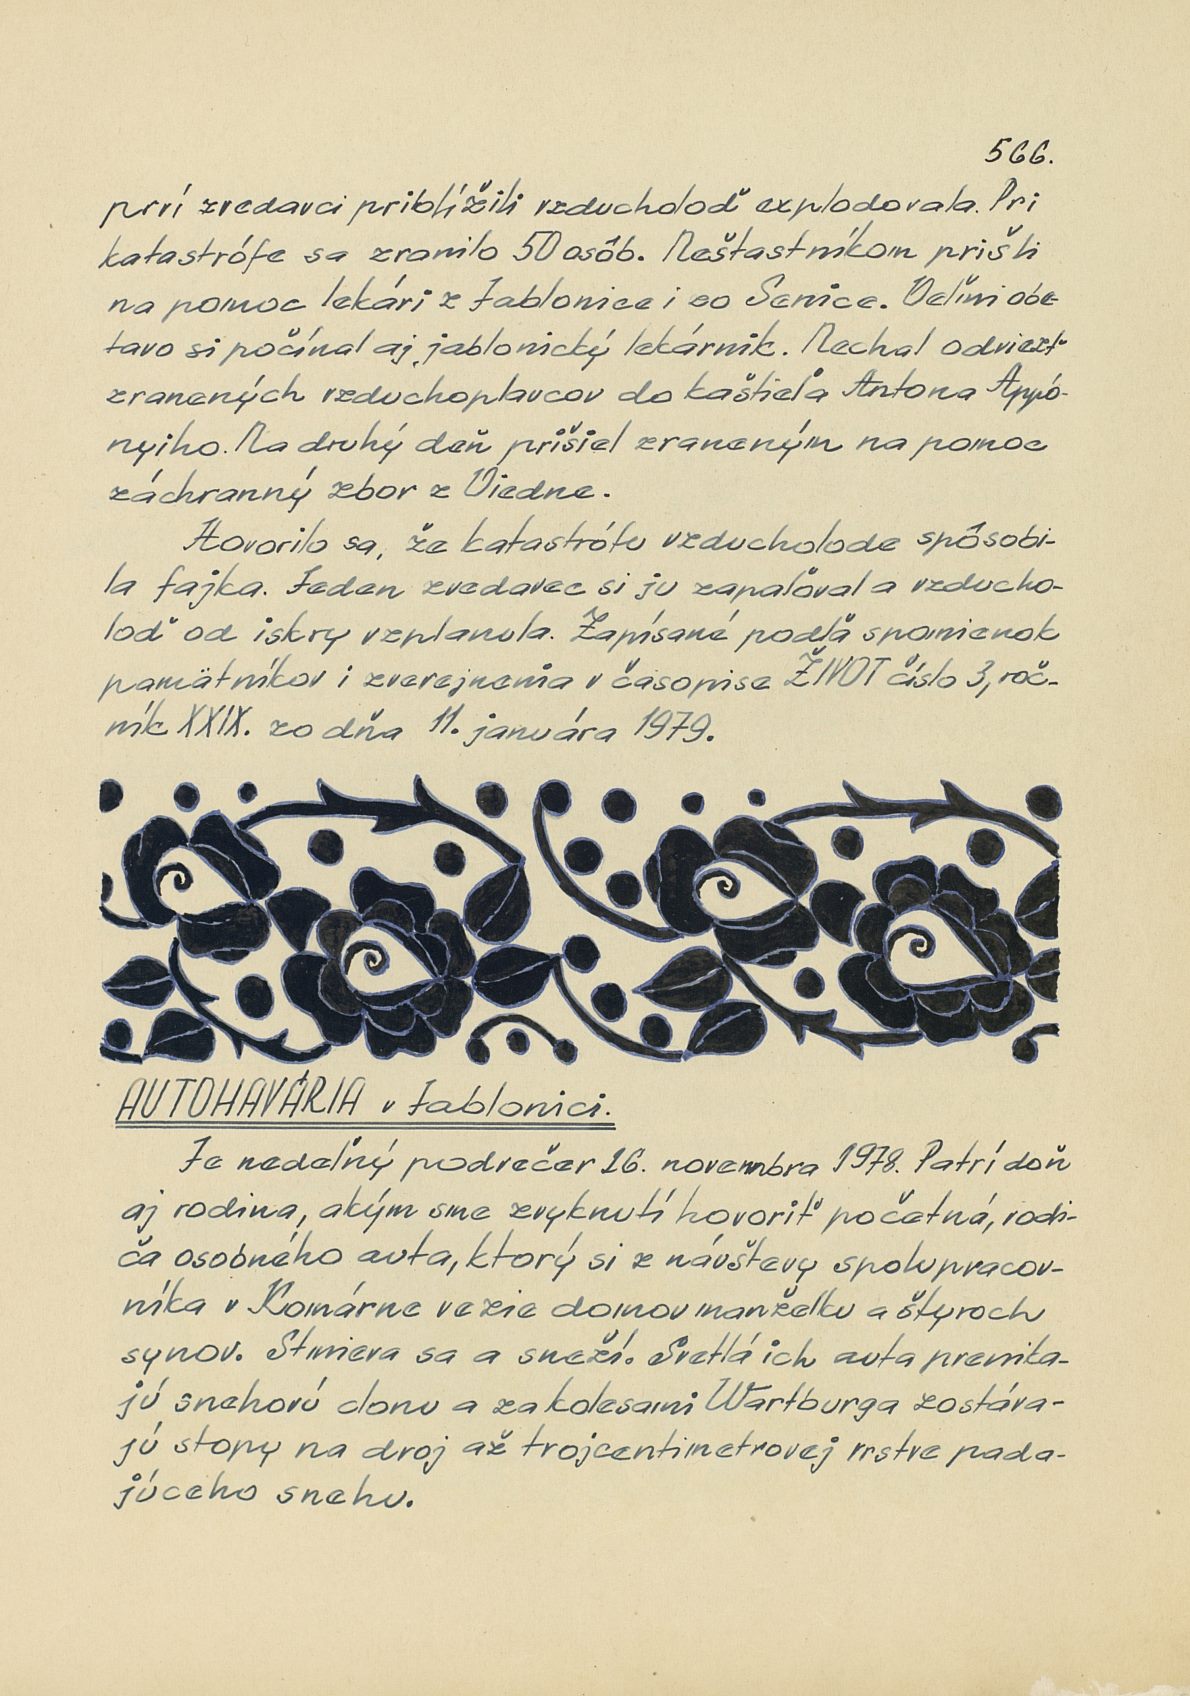 566.
prví zvedavci priblížili vzducholoď explodovala. Pri
katastrófe sa zranilo 50 osôb. Nešťastníkom prišli
na pomoc lekári z Jablonice i zo Senice. Veľmi obe-
tavo si počínal aj jablonický lekárnik. Nechal odviezť
zranených vzduchoplavcov do kaštieľa Antona Appó-
nyiho. Na druhý deň prišiel zraneným na pomoc
záchranný zbor z Viedne.
Hovorilo sa, že katastrófu vzducholode spôsobi-
la fajka. Jeden zvedavec si ju zapaľoval a vzducho-
loď od iskry vzplanula. Zapísané podľa spomienok
pamätníkov i zverejnenia v časopise ŽIVOT číslo 3, roč-
ník XXIX. zo dňa 11. januára 1979.
AUTOHAVÁRIA v Jablonici.
Je nedeľný podvečer 16. novembra 1978. Patrí doň
aj rodina, akým sme zvyknutí hovoriť početná, vodi-
ča osobného auta, ktorý si z návštevy spolupracov-
níka v Komárne vezie domov manželku a štyroch
synov. Stmieva sa a sneží. Svetlá ich auta prenika-
jú snehovú clonu a za kolesami Wartburga zostáva-
jú stopy na dvoj až trojcentimetrovej vrstve pada-
júceho snehu.